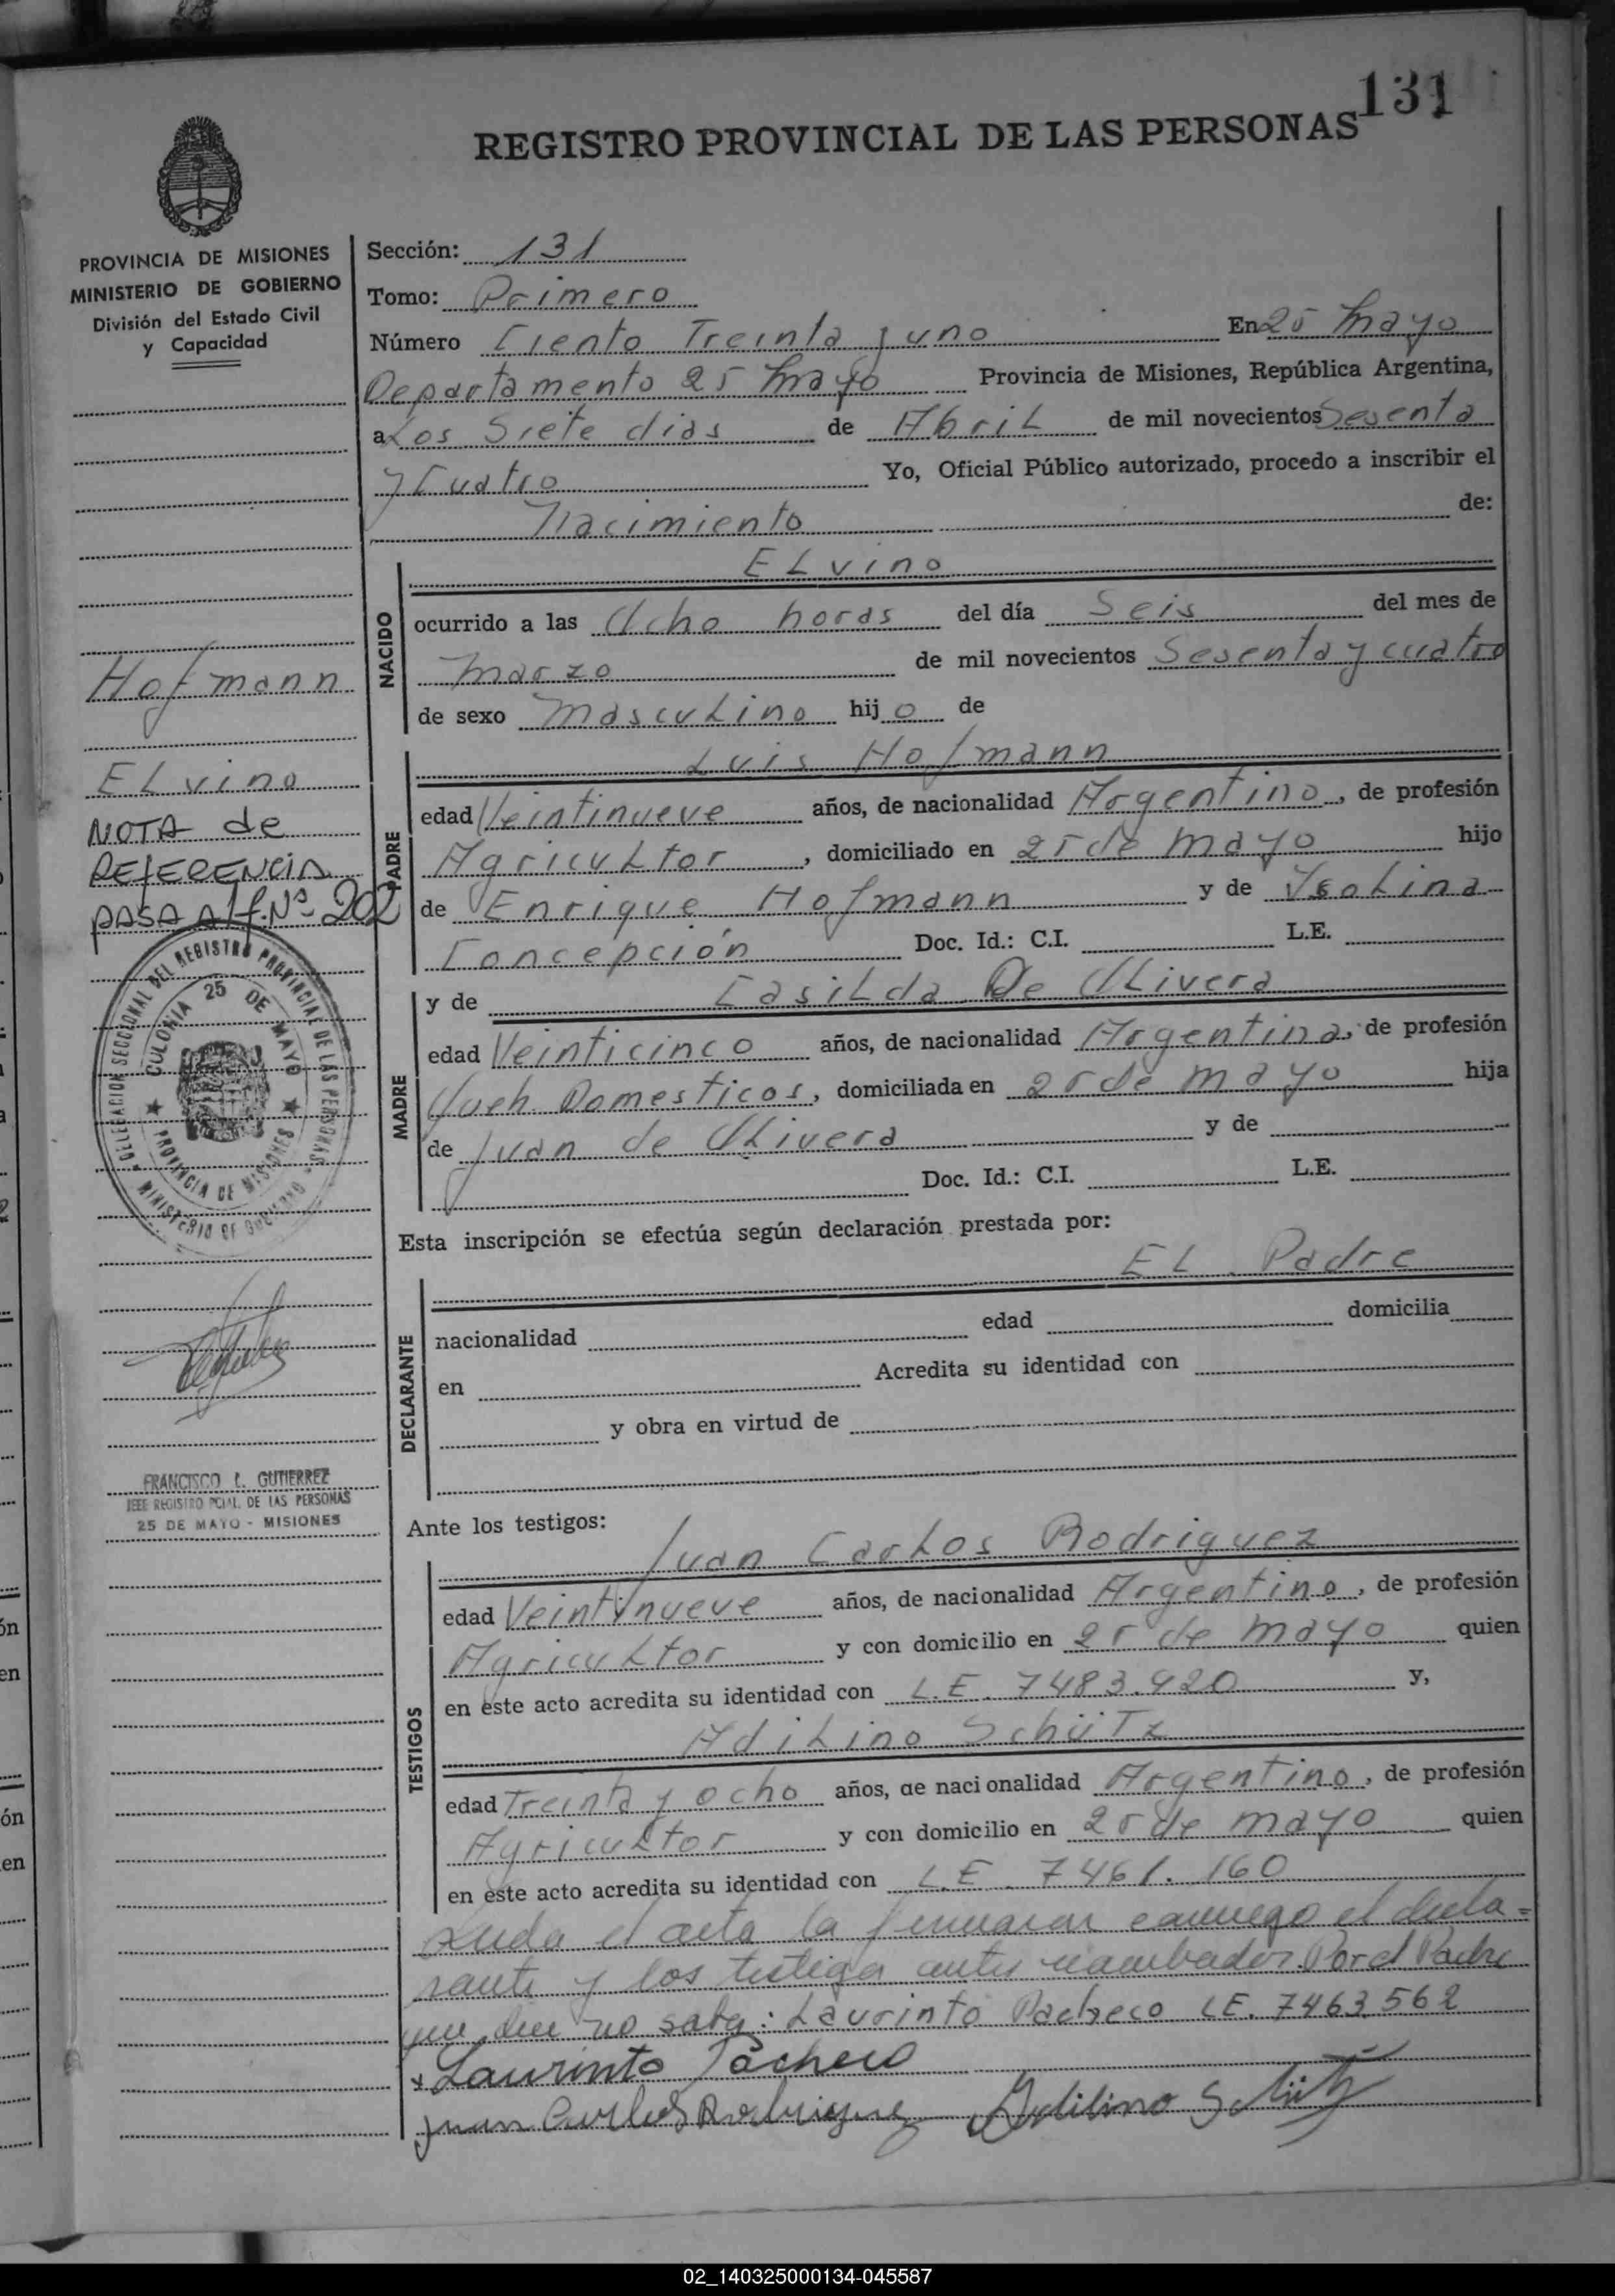 131
REGISTRO PROVINCIAL DE LAS PERSONAS
PROVINCIA DE MISIONES
MINISTERIO DE GOBIERNO
División del Estado Civil
y Capacidad
Sección: 131
Tomo: Primero
Número Ciento Treinta y uno En 25 Mayo
Departamento 25 Mayo Provincia de Misiones, República Argentina,
a Los Siete dias de AbriL de mil novecientos Sesenta
y Cuatro Yo, Oficial Público autorizado, procedo a inscribir el
Nacimiento de:
ELvino
NACIDO
ocurrido a las Ocho horas del día Seis del mes de
Marzo de mil novecientos Sesenta y cuatro
de sexo MascuLino hijo de
Hofmann
ELvino
NOTA de
REFERENCIA
PASA AL f. Nº 202
Luis Hofmann
PADRE
edad Veintinueve años, de nacionalidad Argentino, de profesión
AgricuLtor, domiciliado en 25 de Mayo hijo
de Enrique Hofmann y de YsoLina
Concepción Doc. Id.: C.I. L.E.
y de CasiLda De OLivera
MADRE
edad Veinticinco años, de nacionalidad Argentina, de profesión
Domesticos, domiciliada en 25 de Mayo hija
de Juan de OLivera y de
Doc. Id.: C.I. L.E.
DELEGACION SECCIONAL DEL REGISTRO PROVINCIAL DE LAS PERSONAS
MINISTERIO DE GOBIERNO
COLONIA 25 DE MAYO
PROVINCIA DE MISIONES
Esta inscripción se efectúa según declaración prestada por:
EL Padre
DECLARANTE
nacionalidad edad domicilia
en Acredita su identidad con
y obra en virtud de
FRANCISCO L. GUTIERREZ
JEFE REGISTRO PCIAL. DE LAS PERSONAS
25 DE MAYO - MISIONES
Ante los testigos:
Juan CarLos Rodriguez
TESTIGOS
edad Veintinueve años, de nacionalidad Argentino, de profesión
AgricuLtor y con domicilio en 25 de Mayo quien
en este acto acredita su identidad con L.E. 7483.920 y,
AdiLino Schütz
edad Treinta y ocho años, de nacionalidad Argentino, de profesión
AgricuLtor y con domicilio en 25 de Mayo quien
en este acto acredita su identidad con L.E. 7461.160
el acta la conmigo el decla=
rante y los testigos antes Por el Padre
que no sabe: Laurinto Pacheco LE. 7463.562
Laurinto Pacheco
Juan Carlos Rodriguez Adilino Schütz
02_140325000134-045587